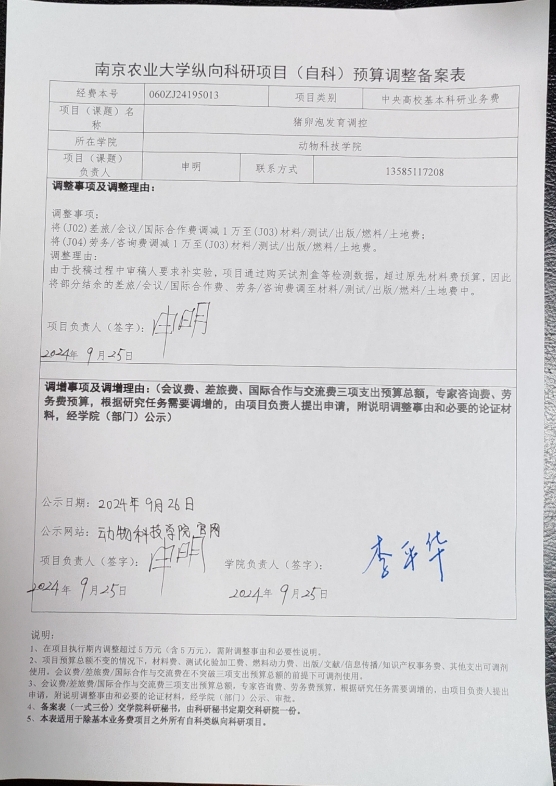 南京农业大学纵向科研项目（自科）预算调整备案表
经费本号 060ZJ24195013 项目类别 中央高校基本科研业务费
项目（课题）名称 猪卵泡发育调控
所在学院 动物科技学院
项目（课题）负责人 申明 联系方式 13585117208
调整事项及调整理由：
调整事项：
将(J02)差旅/会议/国际合作费调减1万至(J03)材料/测试/出版/燃料/土地费；
将(J04)劳务/咨询费调减1万至(J03)材料/测试/出版/燃料/土地费。
调整理由：
由于投稿过程中审稿人要求补实验，项目通过购买试剂盒等检测数据，超过原先材料费预算，因此
将部分结余的差旅/会议/国际合作费、劳务/咨询费调至材料/测试/出版/燃料/土地费中。
项目负责人（签字）：申明
2024年 9月25日
调增事项及调增理由：（会议费、差旅费、国际合作与交流费三项支出预算总额，专家咨询费、劳
务费预算，根据研究任务需要调增的，由项目负责人提出申请，附说明调整事由和必要的论证材
料，经学院（部门）公示）
公示日期：2024年9月26日
公示网站：动物科技学院官网
项目负责人（签字）：申明 学院负责人（签字）：李平华
2024年 9月25日 2024年 9月25日
说明：
1、在项目执行期内调整超过5万元（含5万元），需附调整事由和必要性说明。
2、项目预算总额不变的情况下，材料费、测试化验加工费、燃料动力费、出版/文献/信息传播/知识产权事务费、其他支出可调剂
使用。会议费/差旅费/国际合作与交流费在不突破三项支出预算总额的前提下可调剂使用。
3、会议费/差旅费/国际合作与交流费三项支出预算总额，专家咨询费、劳务费预算，根据研究任务需要调增的，由项目负责人提出
申请，附说明调整事由和必要的论证材料，经学院（部门）公示、审批。
4、备案表（一式三份）交学院科研秘书，由科研秘书定期交科研院一份。
5、本表适用于除基本业务费项目之外所有自科类纵向科研项目。